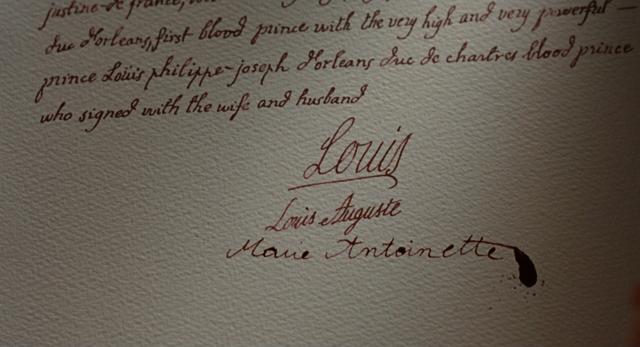 justine-de france,
duc d'orleans, first blood prince with the very high and very powerful —
prince Loüis philippe-joseph d'orleans duc de chartres blood prince
who signed with the wife and husband
Louis
Louis Auguste
Marie Antoinette